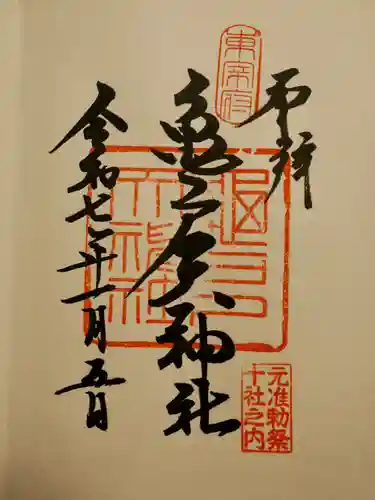 東宰府
奉拝
亀戸天神社
亀戸天神社
元准勅祭
十社之内
令和七年一月五日